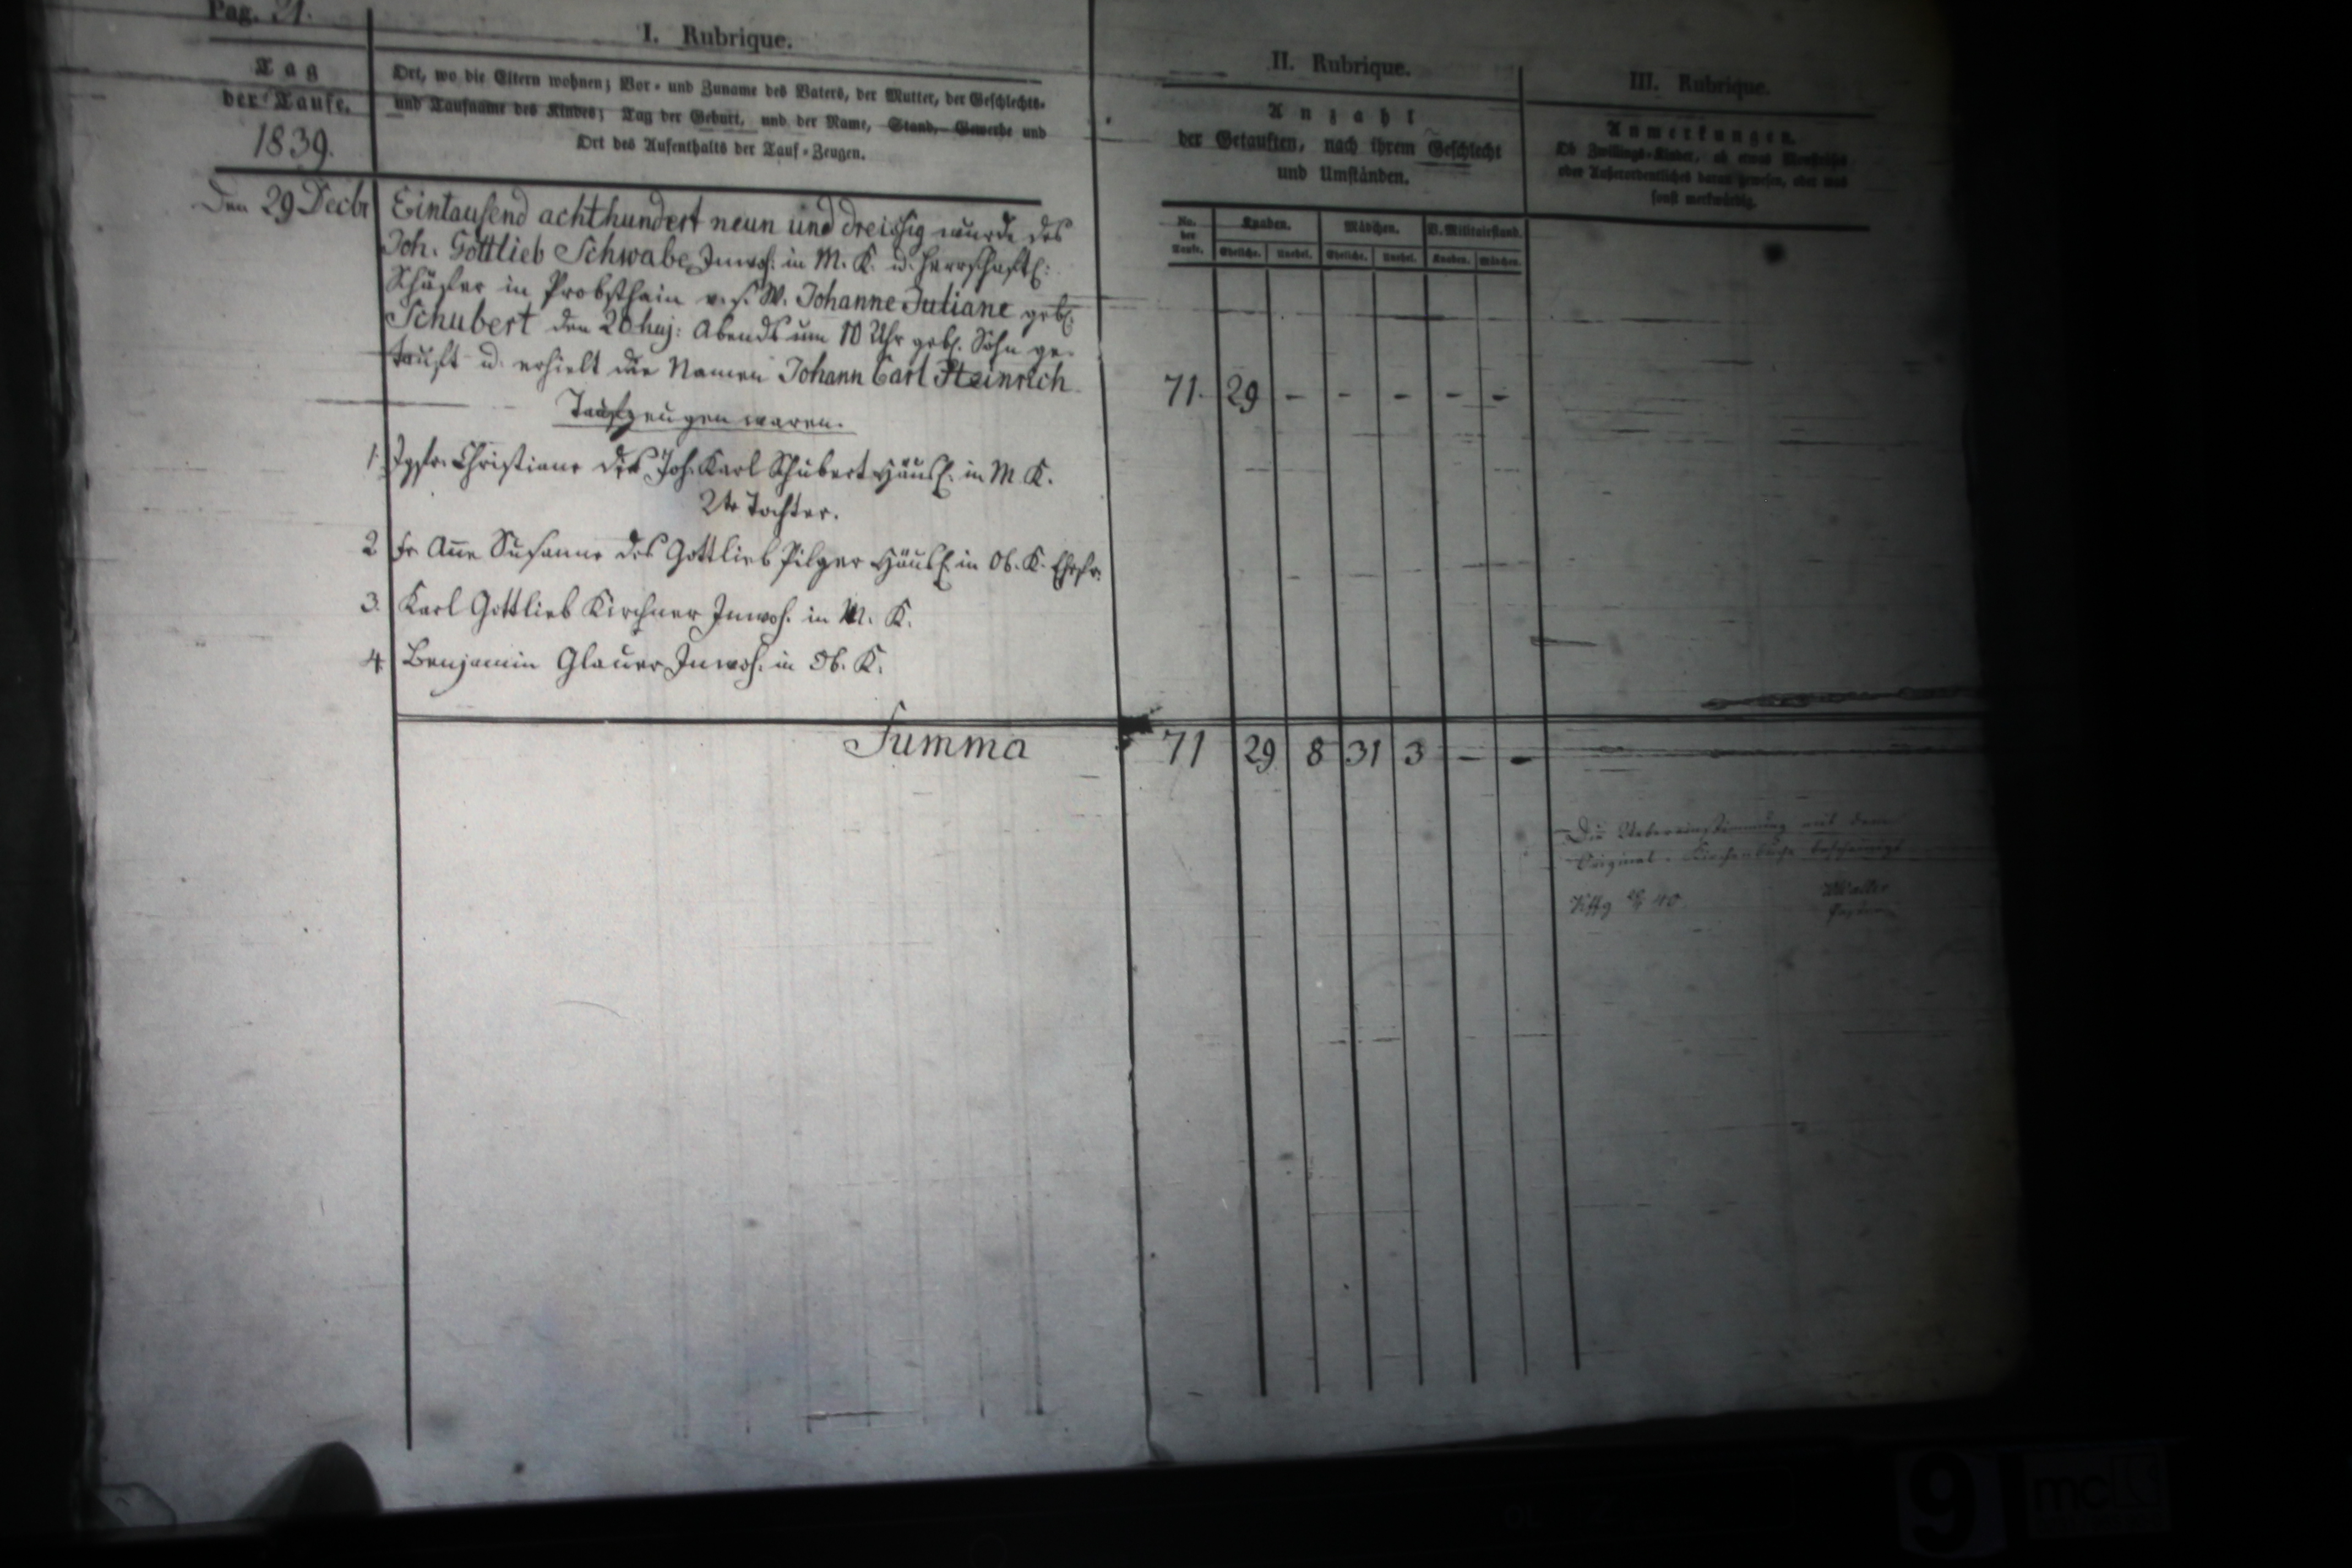 Pag. 21.
I. Rubrique.
Tag
der Taufe.
1839.
Ort, wo die Eltern wohnen; Vor- und Zuname des Vaters, der Mutter, der Geschlechts-
und Taufname des Kindes; Tag der Geburt, und der Name, Stand, Gewerbe und
Ort des Aufenthalts der Tauf-Zeugen.
II. Rubrique.
Anzahl
der Getauften, nach ihrem Geschlecht
und Umständen.
No. der Taufe.
Knaben.
Mädchen.
V. Militairstand.
Eheliche.
Unehel.
Eheliche.
Unehel.
Knaben.
Mädchen.
III. Rubrique.
Anmerkungen.
Ob Zwillings-Kinder, ob etwas
oder Außerordentliches daran gewesen, oder was
sonst merkwürdig.
Den 29 Decbr
Eintausend achthundert neun und dreissig wurde des
Joh. Gottlieb Schwabe Inwoh. in M. K. u. herrschaftl:
Schäfer in Probsthain v. s. W. Johanne Juliane geb.
Schubert den 20 huj: Abends um 10 Uhr geb. Sohn ge-
tauft u. erhielt die Namen Johann Carl Heinrich
71. 29 - - - - -
Taufzeugen waren.
1. Jgfr. Christiane des Joh. Karl Schubert Häusl. in M. K.
2te Tochter.
2 Fr Anne Susanne des Gottlieb Pilger Häusl. in Ob. K. Ehefr.
3. Karl Gottlieb Kirchner Inwoh. in M. K.
4. Benjamin Glauer Inwoh. in Ob. K.
Summa 71 29 8 31 3 - -
Die Uebereinstimmung mit dem
Original-Kirchenbuche bescheinigt
40
9
mc